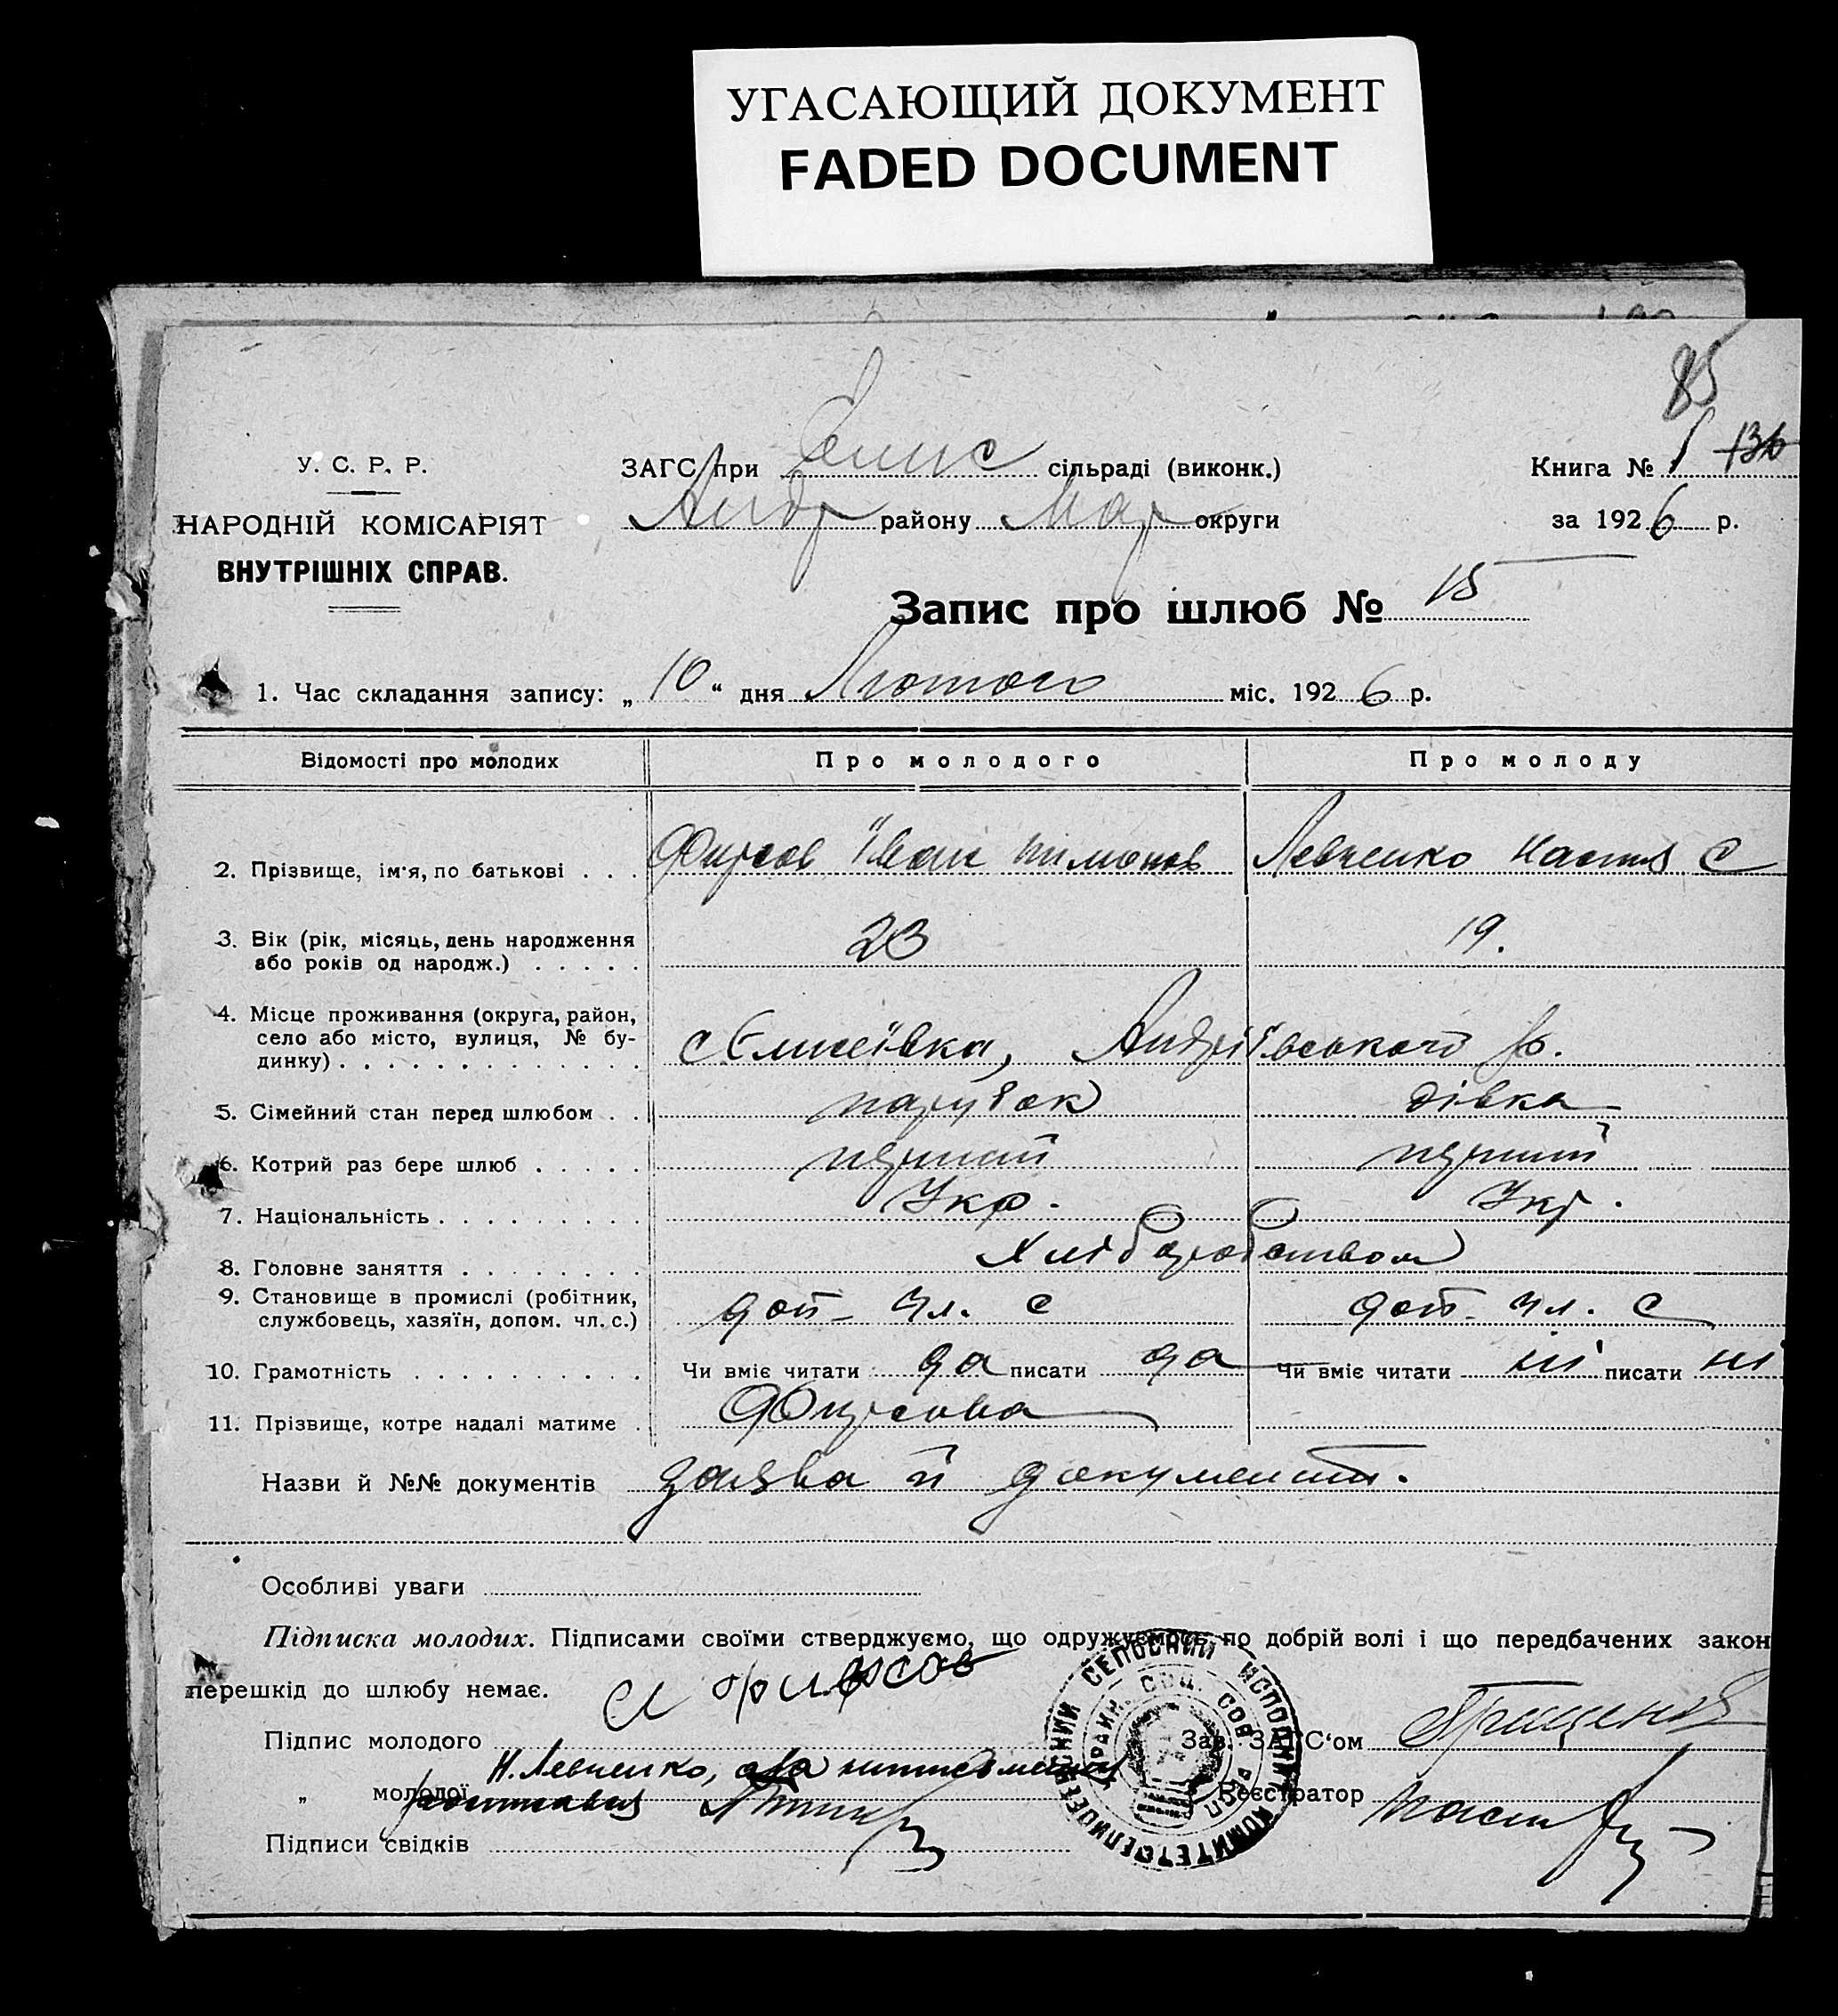 УГАСАЮЩИЙ ДОКУМЕНТ
FADED DOCUMENT
85
У. С. Р. Р.
НАРОДНІЙ КОМІСАРІЯТ
ВНУТРІШНІХ СПРАВ.
ЗАГС при Елис сільраді (виконк.)
Андр району Мар округи
Книга № 1 136
за 1926 р.
Запис про шлюб № 15
1. Час складання запису: „10“ дня Лютого міс. 1926 р.
Відомості про молодих Про молодого Про молоду
2. Прізвище, ім'я, по батькові . . . Фирсов Іван Тимонов Левченко Настя С
3. Вік (рік, місяць, день народження
або років од народж.) . . . . . 23 19.
4. Місце проживання (округа, район,
село або місто, вулиця, № бу-
динку) . . . . . . . . . . . . . с Єлисеївка, Андріївського р.
5. Сімейний стан перед шлюбом . . парубок дівка
6. Котрий раз бере шлюб . . . . . перший перший
7. Національність . . . . . . . . . Укр. Укр.
8. Головне заняття . . . . . . . . Хліборобством
9. Становище в промислі (робітник,
службовець, хазяїн, допом. чл. с.) доп- чл. с доп. чл. с
10. Грамотність . . . . . . . . . . Чи вміє читати да писати да Чи вміє читати ні писати ні
11. Прізвище, котре надалі матиме . Фирсова
Назви й №№ документів заява й документи.
Особливі уваги
Підписка молодих. Підписами своїми стверджуємо, що одружуємось по добрій волі і що передбачених закон
перешкід до шлюбу немає.
Підпис молодого и фирсов
Зав. ЗАГС'ом
„ молодої Н. Левченко, а за
Реєстратор
Підписи свідків
ИСПОЛНИТ. КОМИТЕТ
УКРАИН. СОЦ. СОВ. РЕСП.